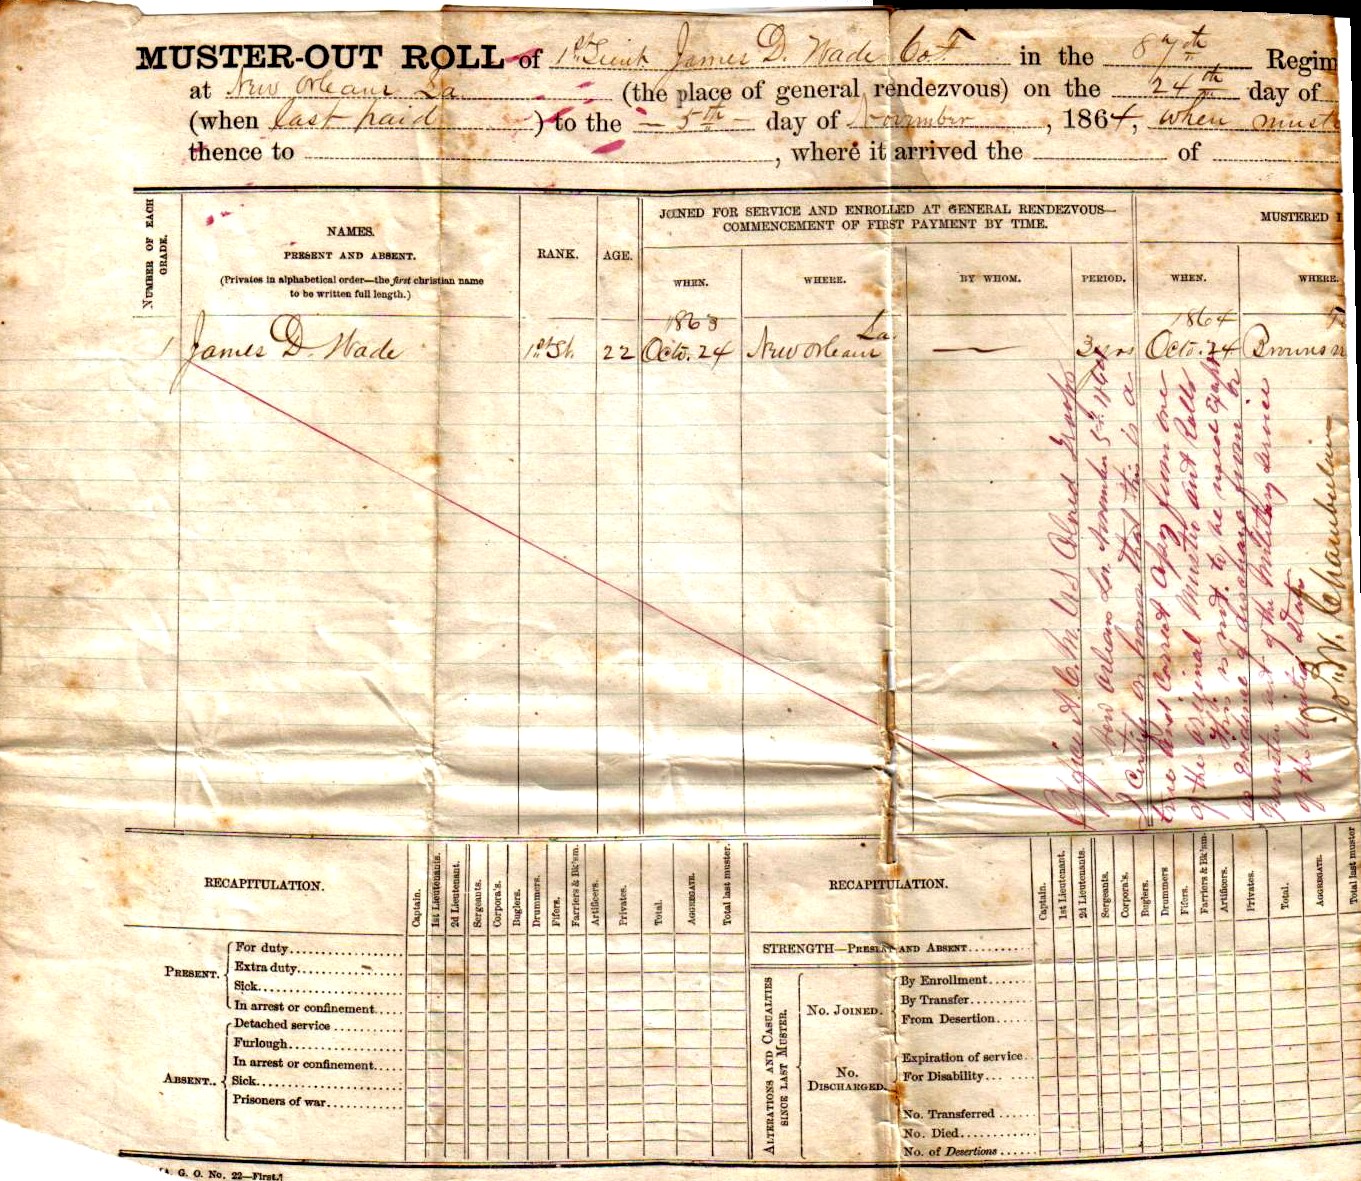 MUSTER-OUT ROLL of 1st Lieut James D. Wade Co F in the 87th Regim
at New Orleans La (the place of general rendezvous) on the 24th day of
(when last paid ) to the — 5th — day of November , 1864, when must
thence to , where it arrived the of
NUMBER OF EACH GRADE.
NAMES.
PRESENT AND ABSENT.
(Privates in alphabetical order—the first christian name
to be written full length.)
RANK.
AGE.
JOINED FOR SERVICE AND ENROLLED AT GENERAL RENDEZVOUS—
COMMENCEMENT OF FIRST PAYMENT BY TIME.
WHEN.
WHERE.
BY WHOM.
PERIOD.
MUSTERED I
WHEN.
WHERE.
1863 La 1864
1 James D. Wade 1st Lt. 22 Octo. 24 New Orleans — 3 yrs Octo. 24 Browns
Office A.C.M. U.S. Colored Troops
New Orleans La. November 5th 1864
I Certify on honor that this is a
true and correct copy from one
of the Original Muster out Rolls
This is not to be used
as evidence of discharge from or
muster out of the Military Service
of the United States
Jno W. Chamberlin
RECAPITULATION.
Captain.
1st Lieutenants.
2d Lieutenant.
Sergeants.
Corpora's.
Buglers.
Drummers.
Fifers.
Farriers & Bk'sm.
Artificers.
Privates.
Total.
AGGREGATE.
Total last muster.
PRESENT.
For duty
Extra duty
Sick
In arrest or confinement
ABSENT..
Detached service
Furlough
In arrest or confinement
Sick
Prisoners of war
RECAPITULATION.
Captain.
1st Lieutenant.
2d Lieutenants.
Sergeants.
Corpora's.
Buglers.
Drummers
Fifers.
Farriers & Bk'sm
Artificers.
Privates.
Total.
AGGREGATE.
Total last muster
STRENGTH—PRESENT AND ABSENT
ALTERATIONS AND CASUALTIES
SINCE LAST MUSTER.
NO. JOINED.
By Enrollment
By Transfer
From Desertion
NO.
DISCHARGED.
Expiration of service
For Disability
No. Transferred
No. Died
No. of Desertions
[A. G. O. No. 22—First.]